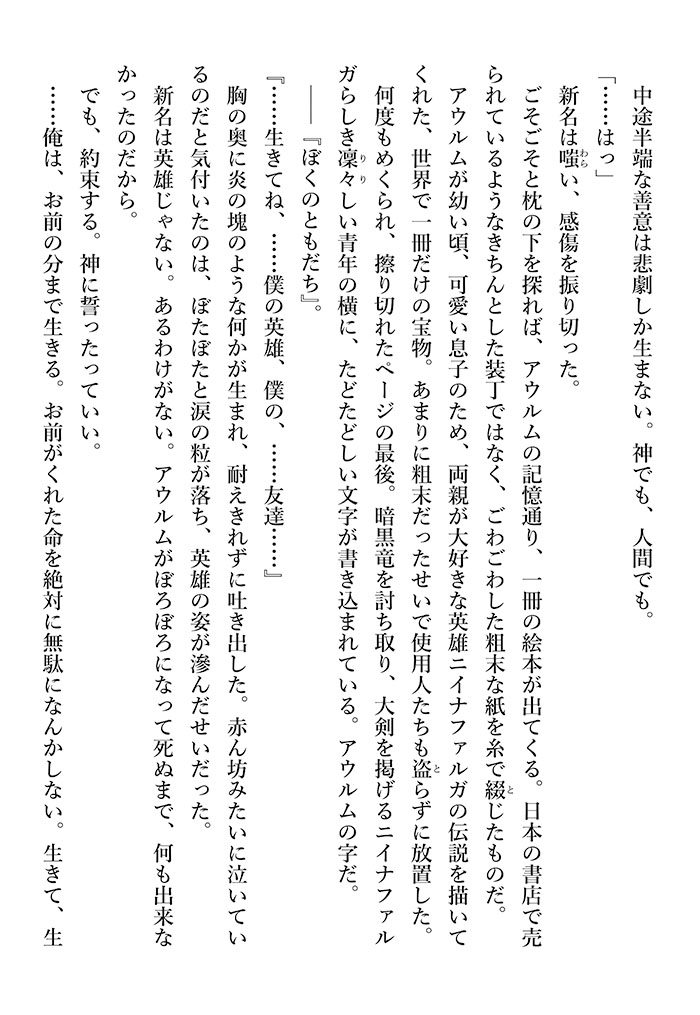 中途半端な善意は悲劇しか生まない。神でも、人間でも。
「……はっ」
新名は嗤い、感傷を振り切った。
ごそごそと枕の下を探れば、アウルムの記憶通り、一冊の絵本が出てくる。日本の書店で売
られているようなきちんとした装丁ではなく、ごわごわした粗末な紙を糸で綴じたものだ。
アウルムが幼い頃、可愛い息子のため、両親が大好きな英雄ニイナファルガの伝説を描いて
くれた、世界で一冊だけの宝物。あまりに粗末だったせいで使用人たちも盗らずに放置した。
何度もめくられ、擦り切れたページの最後。暗黒竜を討ち取り、大剣を掲げるニイナファル
ガらしき凜々しい青年の横に、たどたどしい文字が書き込まれている。アウルムの字だ。
――『ぼくのともだち』。
『……生きてね、……僕の英雄、僕の、……友達……』
胸の奥に炎の塊のような何かが生まれ、耐えきれずに吐き出した。赤ん坊みたいに泣いてい
るのだと気付いたのは、ぼたぼたと涙の粒が落ち、英雄の姿が滲んだせいだった。
新名は英雄じゃない。あるわけがない。アウルムがぼろぼろになって死ぬまで、何も出来な
かったのだから。
でも、約束する。神に誓ったっていい。
……俺は、お前の分まで生きる。お前がくれた命を絶対に無駄になんかしない。生きて、生